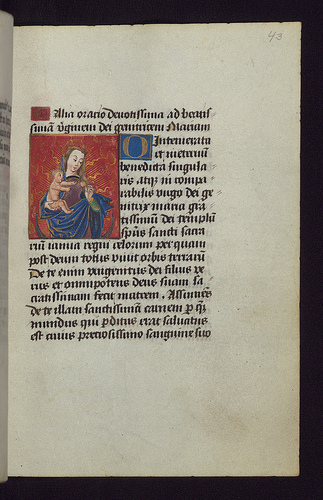 43
Alia oratio devotissima ad beatis
simã v̾ginem dei genitricem Mariam
O Intemerata
et in eternũ
benedicta singula
ris. atq; in compa
rabilis virgo dei ge
nitrix maria gra
tissimũ dei templũ
sp̃us sancti sacra
riũ ianua regni celorum per quam
post deum totus viuit orbis terrarũ
De te enim dei filius ve
rus et omnipotens deus suam sa
cratissimam fecit matrem. Assumẽs
de te illam sanctissimã carnem p quã
mundus qui p̃ditus erat saluatus
est cuius preciosissimo sanguine suo